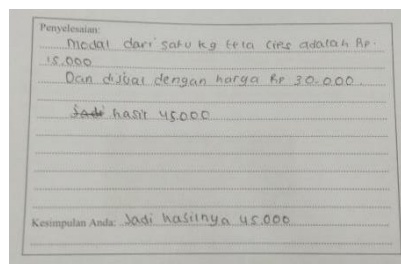 Penyelesaian:
modal dari satu kg tela cips adalah Rp.
15.000
Dan dijual dengan harga Rp 30.000.
Jadi hasil 45.000
Kesimpulan Anda: Jadi hasilnya 45.000